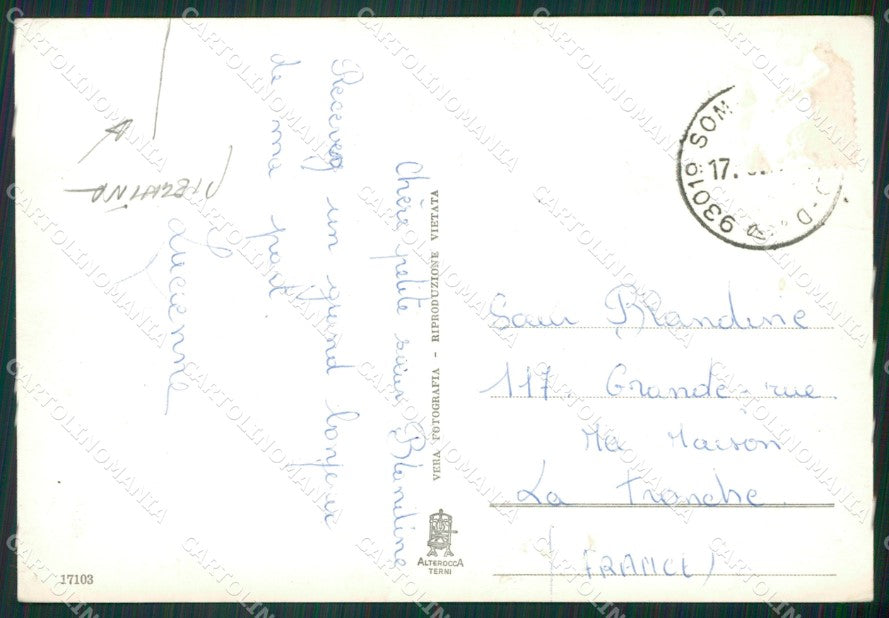 Chère petite sœur Blandine
Recevez un grand bonjour
de ma part.
Lucienne
VERA FOTOGRAFIA - RIPRODUZIONE VIETATA
ALTEROCCA
TERNI
17103
93019 SOM
17.
Sœur Blandine
117 Grande-rue
Ma Maison
La Tronche
FRANCE
CARTOLINOMANIA